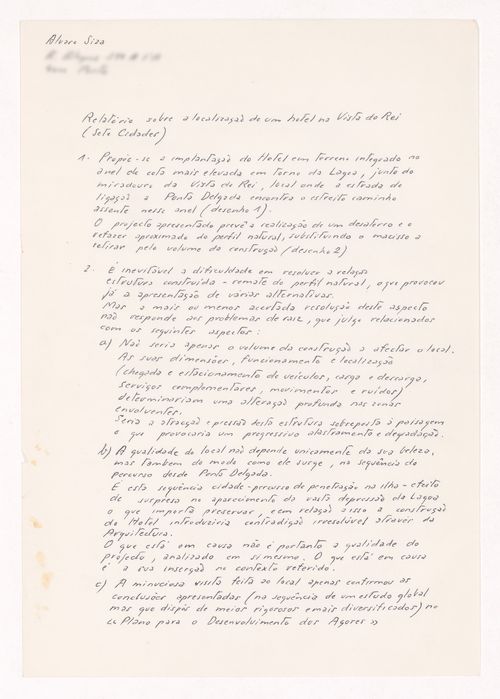 Alvaro Siza
Relatório sobre a localização de um hotel na Vista do Rei
(Sete Cidades)
1. Propõe-se a implantação do Hotel em terreno integrado no
anel de cota mais elevada em torno da Lagoa, junto do
miradouro da Vista do Rei, local onde a estrada de
ligação a Ponta Delgada encontra o estreito caminho
assente nesse anel (desenho 1).
O projecto apresentado prevê a realização de um desaterro e o
refazer aproximado do perfil natural, substituindo o macisso a
retirar pelo volume da construção (desenho 2)
2. É inevitável a dificuldade em resolver a relação
estrutura construída - remate do perfil natural, o que provocou
já a apresentação de várias alternativas.
Mas a mais ou menos acertada resolução deste aspecto
não responde aos problemas de raiz, que julgo relacionados
com os seguintes aspectos:
a) Não seria apenas o volume da construção a afectar o local.
As suas dimensões, funcionamento e localização
(chegada e estacionamento de veículos, carga e descarga,
serviços complementares, movimentos e ruídos)
determinariam uma alteração profunda nas zonas
envolventes.
Seria a atracção e pressão desta estrutura sobreposta à paisagem
o que provocaria um progressivo alastramento e degradação.
b) A qualidade do local não depende unicamente da sua beleza,
mas tambem do modo como ele surge, na sequência do
percurso desde Ponta Delgada.
É esta sequência cidade-percurso de penetração na ilha-efeito
de surpresa no aparecimento da vasta depressão da Lagoa
o que importa preservar, e em relação a isso a construção
do Hotel introduziria contradição irresolúvel através da
Arquitectura.
O que está em causa não é portanto a qualidade do
projecto, analizado em si mesmo. O que está em causa
é a sua inserção no contexto referido.
c) A minuciosa visita feita ao local apenas confirmou as
conclusões apresentadas (na sequência de um estudo global
mas que dispôs de meios rigorosos e mais diversificados) no
« Plano para o Desenvolvimento dos Açores »